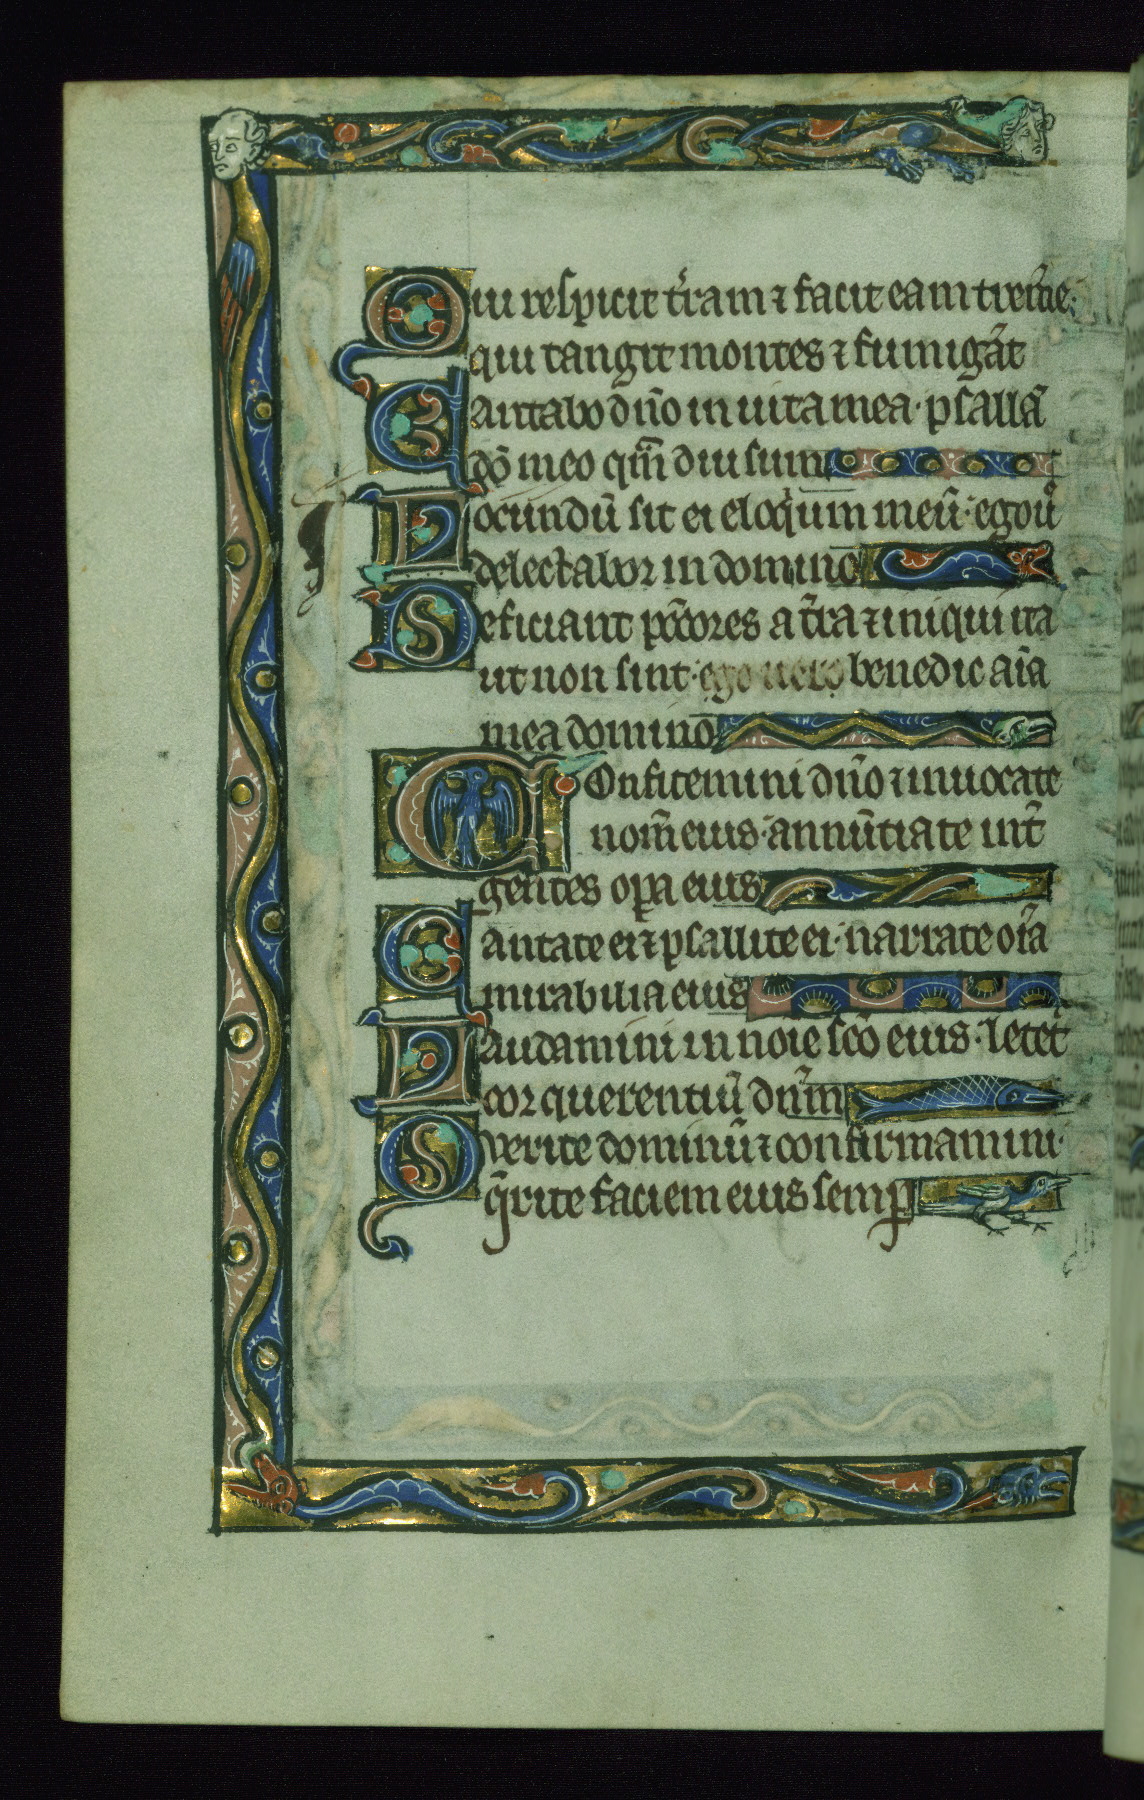 Qui respicit t̾ram ⁊ facit eam trem̾e·
qui tangit montes ⁊ fumigāt
Cantabo dn̄o in uita mea· psallā
dō meo qm̄ diu sum
Iocundū sit ei eloqͥum meū· ego uͦ
delectabor in domino
Deficiant pc̄cores a t̾ra ⁊ iniqui ita
ut non sint· ego uero benedic aīa
mea domino
Confitemini dn̄o ⁊ inuocate
nom̄ eius· annūtiate int̾
gentes oꝑa eius
Cantate ei ⁊ psallite ei· narrate oīa
mirabilia eius
Laudamini in noīe sc̄o eius· letet᷑
cor querentiū dn̄m
Querite dominū ⁊ confirmamini·
q̄rite faciem eius semꝑ